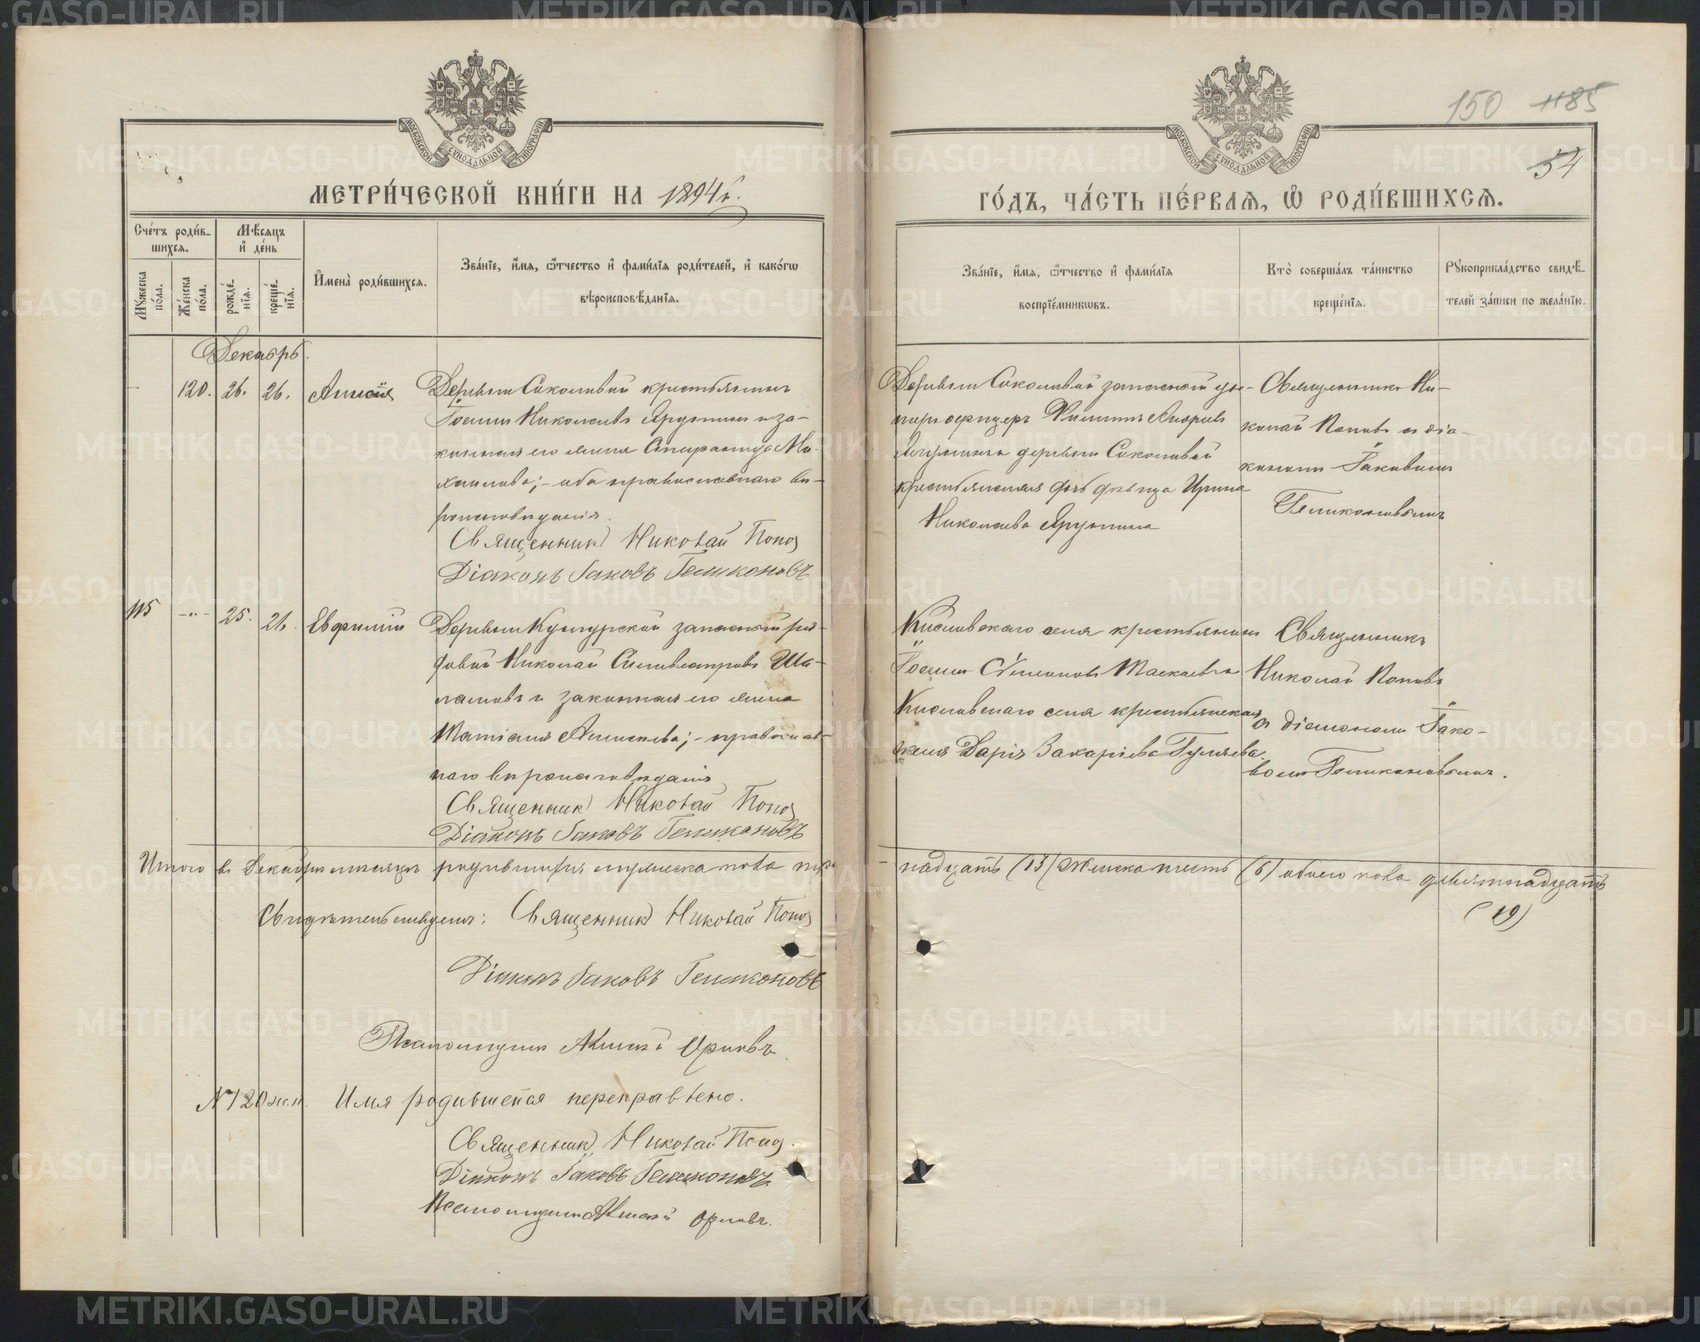 150 1185
54
МОСКОВСКОЙ СѴНОДАЛЬНОЙ ТИПОГРАФІИ
МОСКОВСКОЙ СѴНОДАЛЬНОЙ ТИПОГРАФІИ
МЕТРИ́ЧЕСКОЙ КНИ́ГИ НА 1894 г.
ГО́ДЪ, ЧА́СТЬ ПЕ́РВАѦ, Ѽ РОДИ́ВШИХСѦ.
Сче́тъ роди́вшихся.
Мѣ́сяцъ и҆ де́нь
Му́жеска по́ла.
Же́нска по́ла.
рожде́нїя.
креще́нїя.
И҆мена̀ роди́вшихся.
Зва́нїе, и҆́мя, ѻ҆́тчество и҆ фами́лїя роди́телей, и҆ како́гѡ
вѣроисповѣ́данїя.
Зва́нїе, и҆́мя, ѻ҆́тчество и҆ фами́лїя
воспрїе́мникѡвъ.
Кто̀ соверша́лъ та́инство
креще́нїя.
Рꙋкоприкла́дство свидѣ́-
телей за́писи по жела́нїю.
Декабрь.
120. 26. 26. Анисія
Деревни Соколовой крестьянинъ
Іосифъ Николаевъ Ярушинъ и за-
конная его жена Стефанида Ми-
хаилова; – оба православнаго вѣ-
роисповѣданія.
Священникъ Николай Поповъ
Діаконъ Іаковъ Геликоновъ
Деревни Соколовой запасной ун-
теръ офицеръ Филиппъ Андреевъ
Ярушинъ деревни Соколовой
крестьянская дочь дѣвица Ирина
Николаева Ярушина
Священникъ Ни-
колай Поповъ съ діа-
кономъ Іаковомъ
Геликоновымъ
115 -"- 25. 26. Евфимій
Деревни Кунгурской запасной ря-
довой Николай Силивестровъ Ша-
ламовъ и законная его жена
Татіана Алексѣева; – православ-
наго вѣроисповѣданія
Священникъ Николай Поповъ
Діаконъ Іаковъ Геликоновъ
Кисловскаго села крестьянинъ
Іосифъ Симеоновъ Таскаевъ
Кисловскаго села крестьянская
жена Дарія Захаріева Гуляева.
Священникъ
Николай Поповъ
съ діакономъ Іако-
вомъ Геликоновымъ.
Итого въ Декабрѣ мѣсяцѣ родившихся мужеска пола три-
надцать (13) женска шесть (6) обоего пола девятнадцать
(19)
Свидѣтельствуемъ: Священникъ Николай Поповъ
Діаконъ Іаковъ Геликоновъ
Псаломщикъ Алексѣй Орловъ.
№ 120 жен Имя родившейся переправлено.
Священникъ Николай Поповъ.
Діаконъ Іаковъ Геликоновъ
Псаломщикъ Алексѣй Орловъ.
METRIKI.GASO-URAL.RU